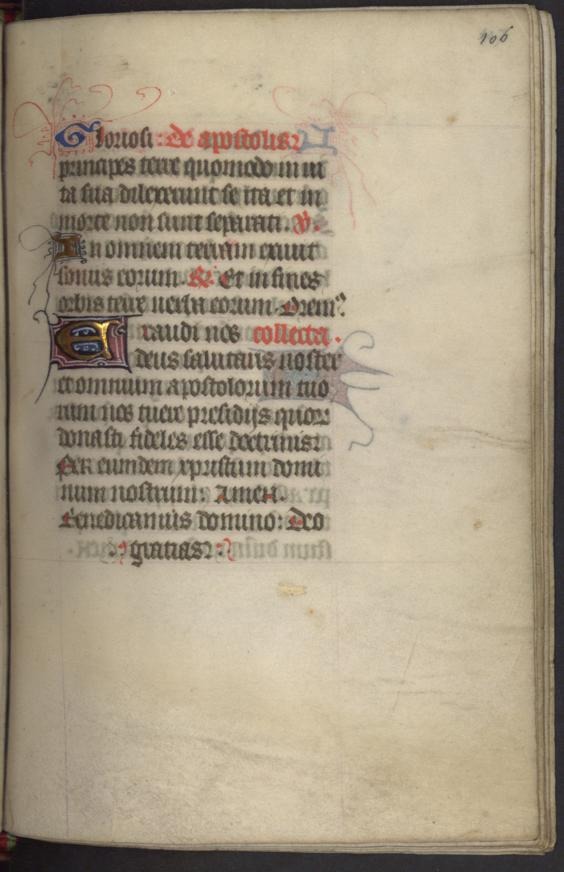 106
Gloriosi: De apostolis:
principes terre quomodo in ui
ta sua dilexerunt se ita et in
morte non sunt separati. V.
In omnem terram exiuit
sonus eorum. R. Et in fines
orbis terre uerba eorum. Orem9.
Exaudi nos collecta.
deus salutaris noster
et omnium apostolorum tuo
rum nos tuere presidijs quorum
donasti fideles esse doctrinis:
Per eumdem xpristum domi
num nostrum: Amen.
Benedicamus domino: Deo
gratias: